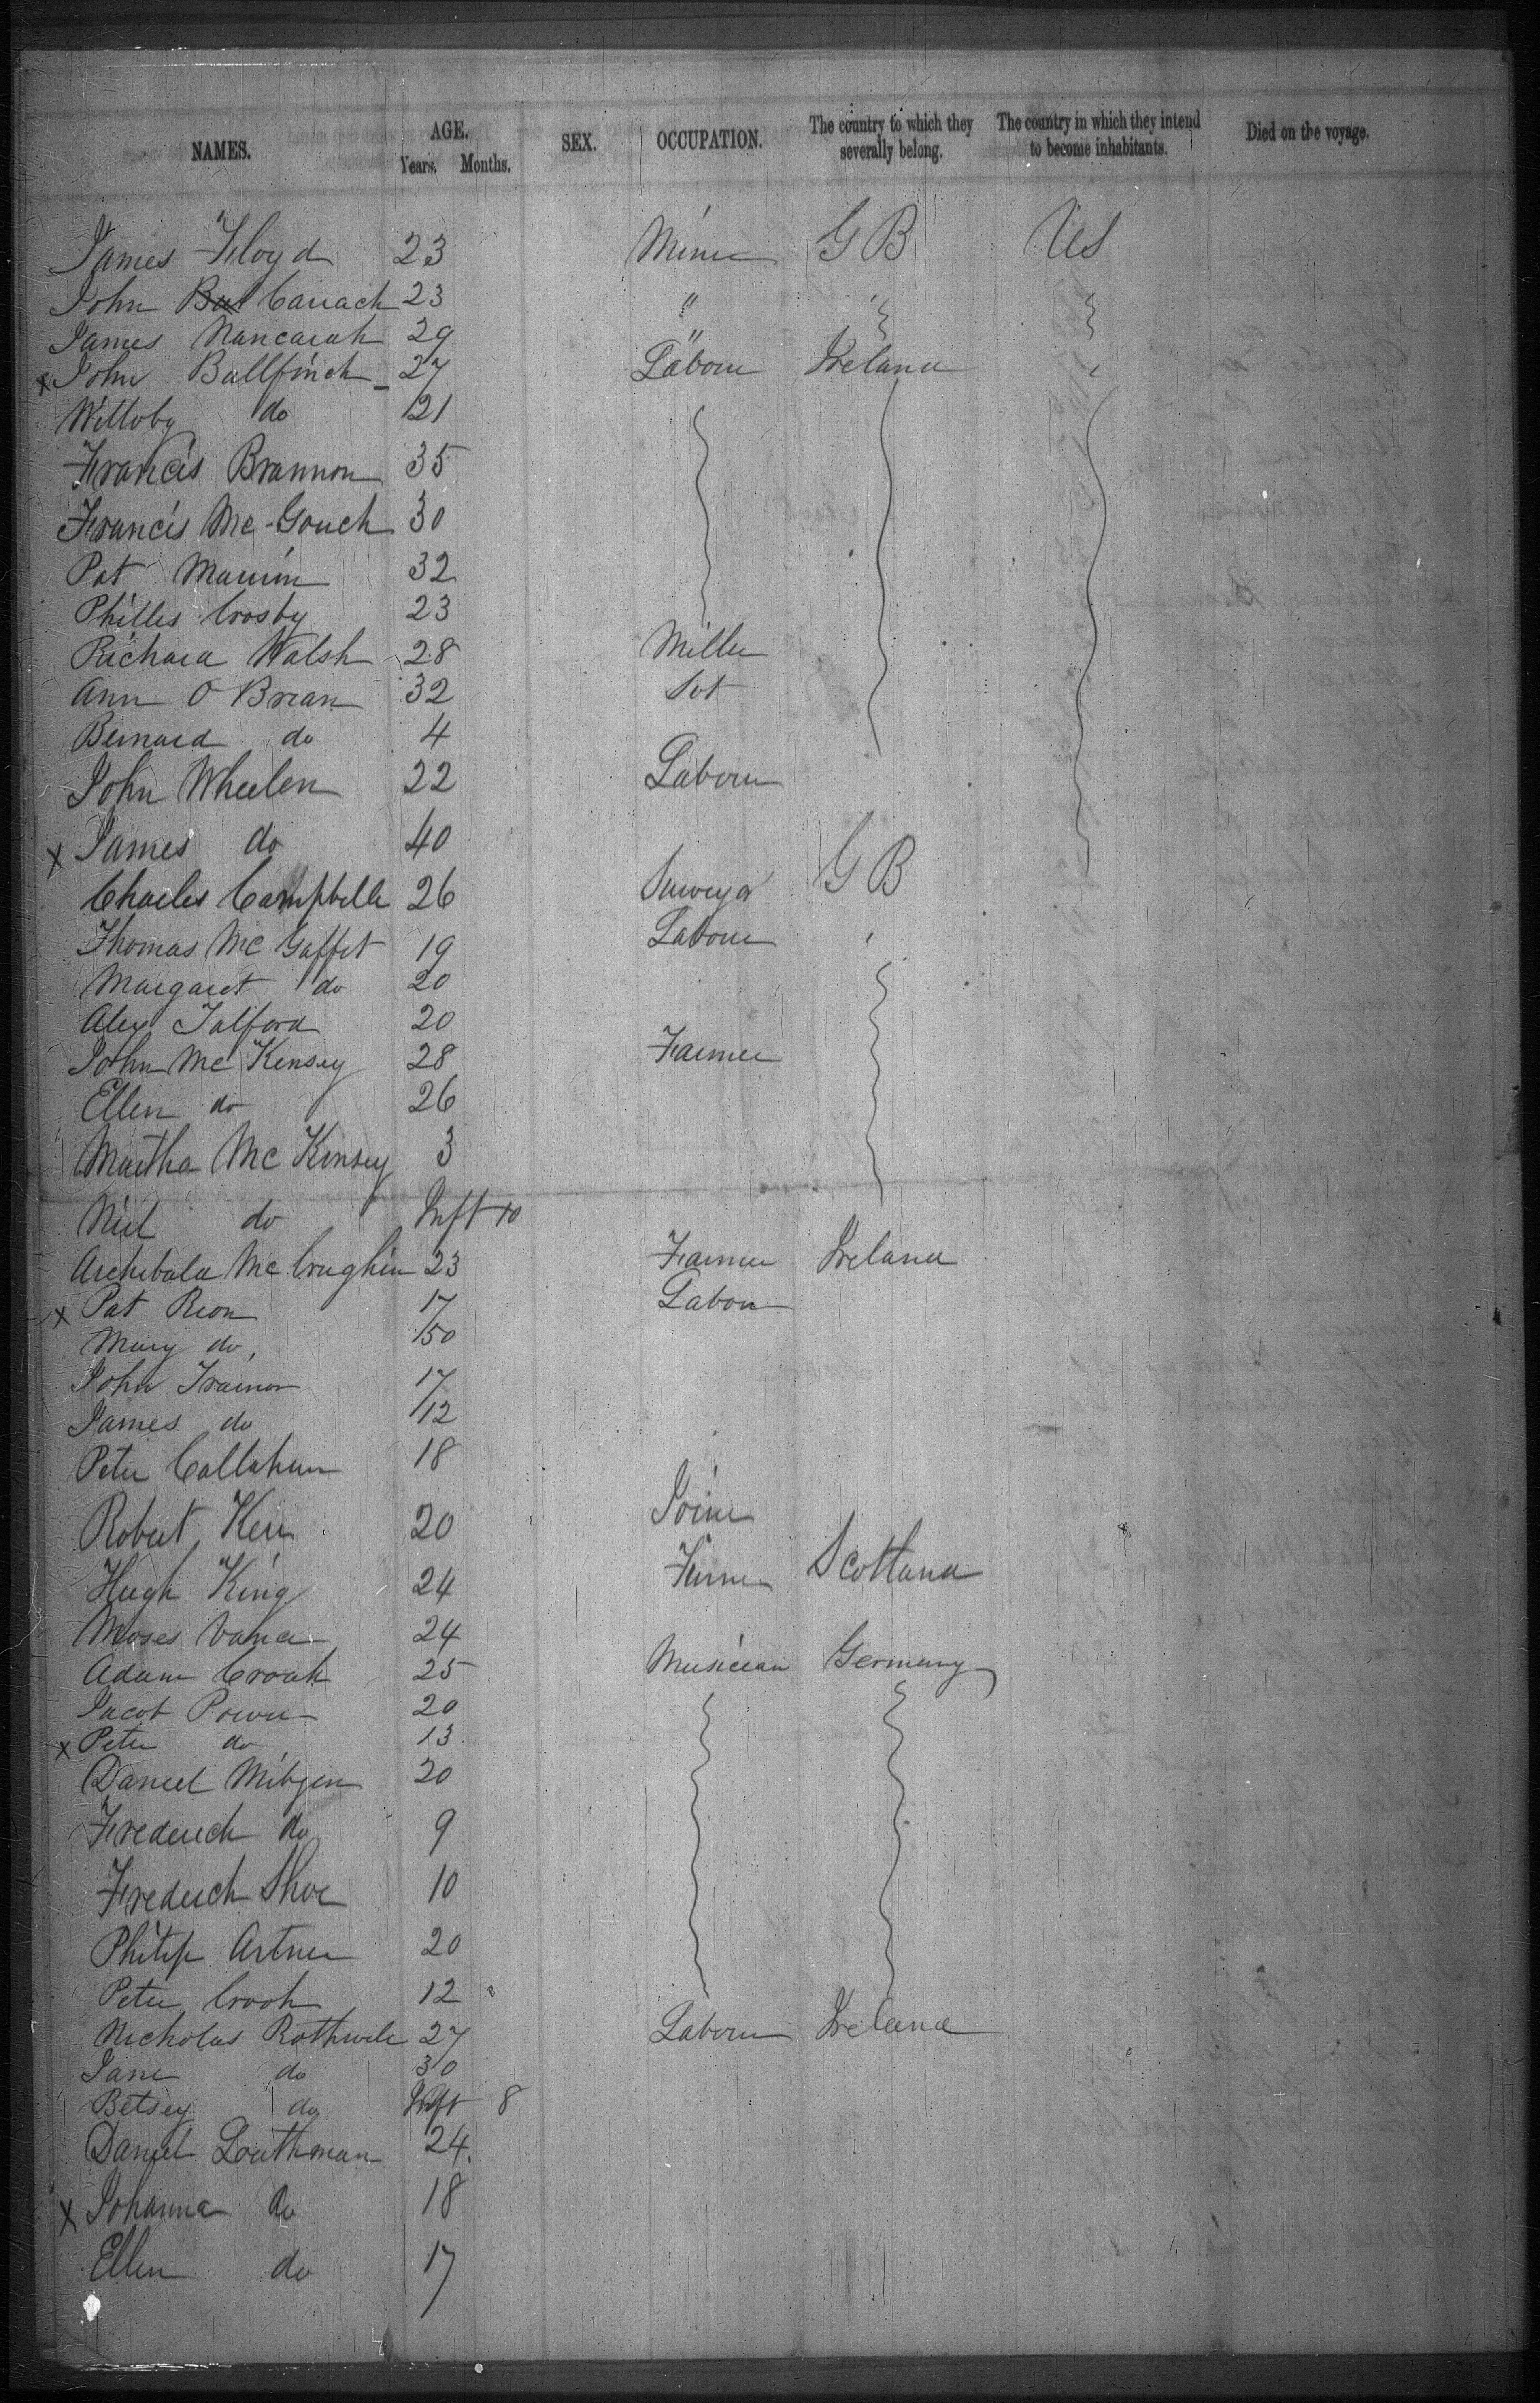 NAMES. AGE. Years. Months. SEX. OCCUPATION. The country to which they severally belong. The country in which they intend to become inhabitants. Died on the voyage.
James Floyd 23 Miner G B US
John Canach 23 "
James Nancarah 29 "
x John Bullfinch 27 Laborer Ireland
Willoby do 21
Francis Brannon 35
Francis Mc Gouch 30
Pat 32
Phillis Crosby 23
Richard Walsh 28 Miller
Ann O Brian 32
Bernard do 4
John Wheelen 22 Laborer
x James do 40
Charles Campbelle 26 Surveyor G B
Thomas Mc Gaffet 19 Laborer
Margaret do 20
Alex Talford 20
John Mc Kensey 28 Farmer
Ellen do 26
Martha Mc Kensey 3
Niel do Inft 10
Archibald Mc 23 Farmer Ireland
x Pat Rion 17 Labor
Mary do 50
John Trainor 17
James do 12
Peter Callahan 18
Robert Kerr 20 Joiner
Hugh King 24 Scotland
Moses Vance 24
Adam Crook 25 Musician Germany
Jacob Power 20
x Peter do 13
Daniel 20
Frederick do 9
Frederick Shoe 10
Philip Artner 20
Peter Crook 12
Nicholas Rothwele 27 Laborer Ireland
Jane do 30
Betsey do Inft 8
Daniel Louthman 24.
x Johanna do 18
Ellen do 17